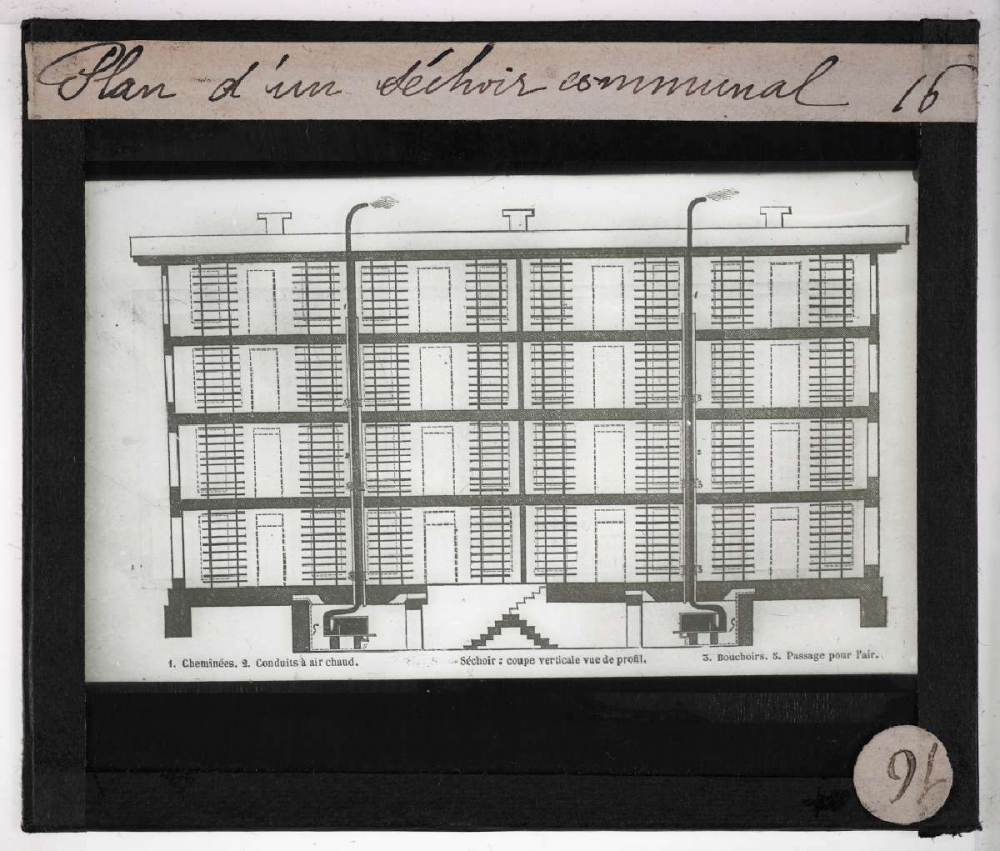 Plan d'un séchoir communal 16
1. Cheminées. 2. Conduits à air chaud. Séchoir : coupe verticale vue de profil. 3. Bouchoirs. 5. Passage pour l'air.
16